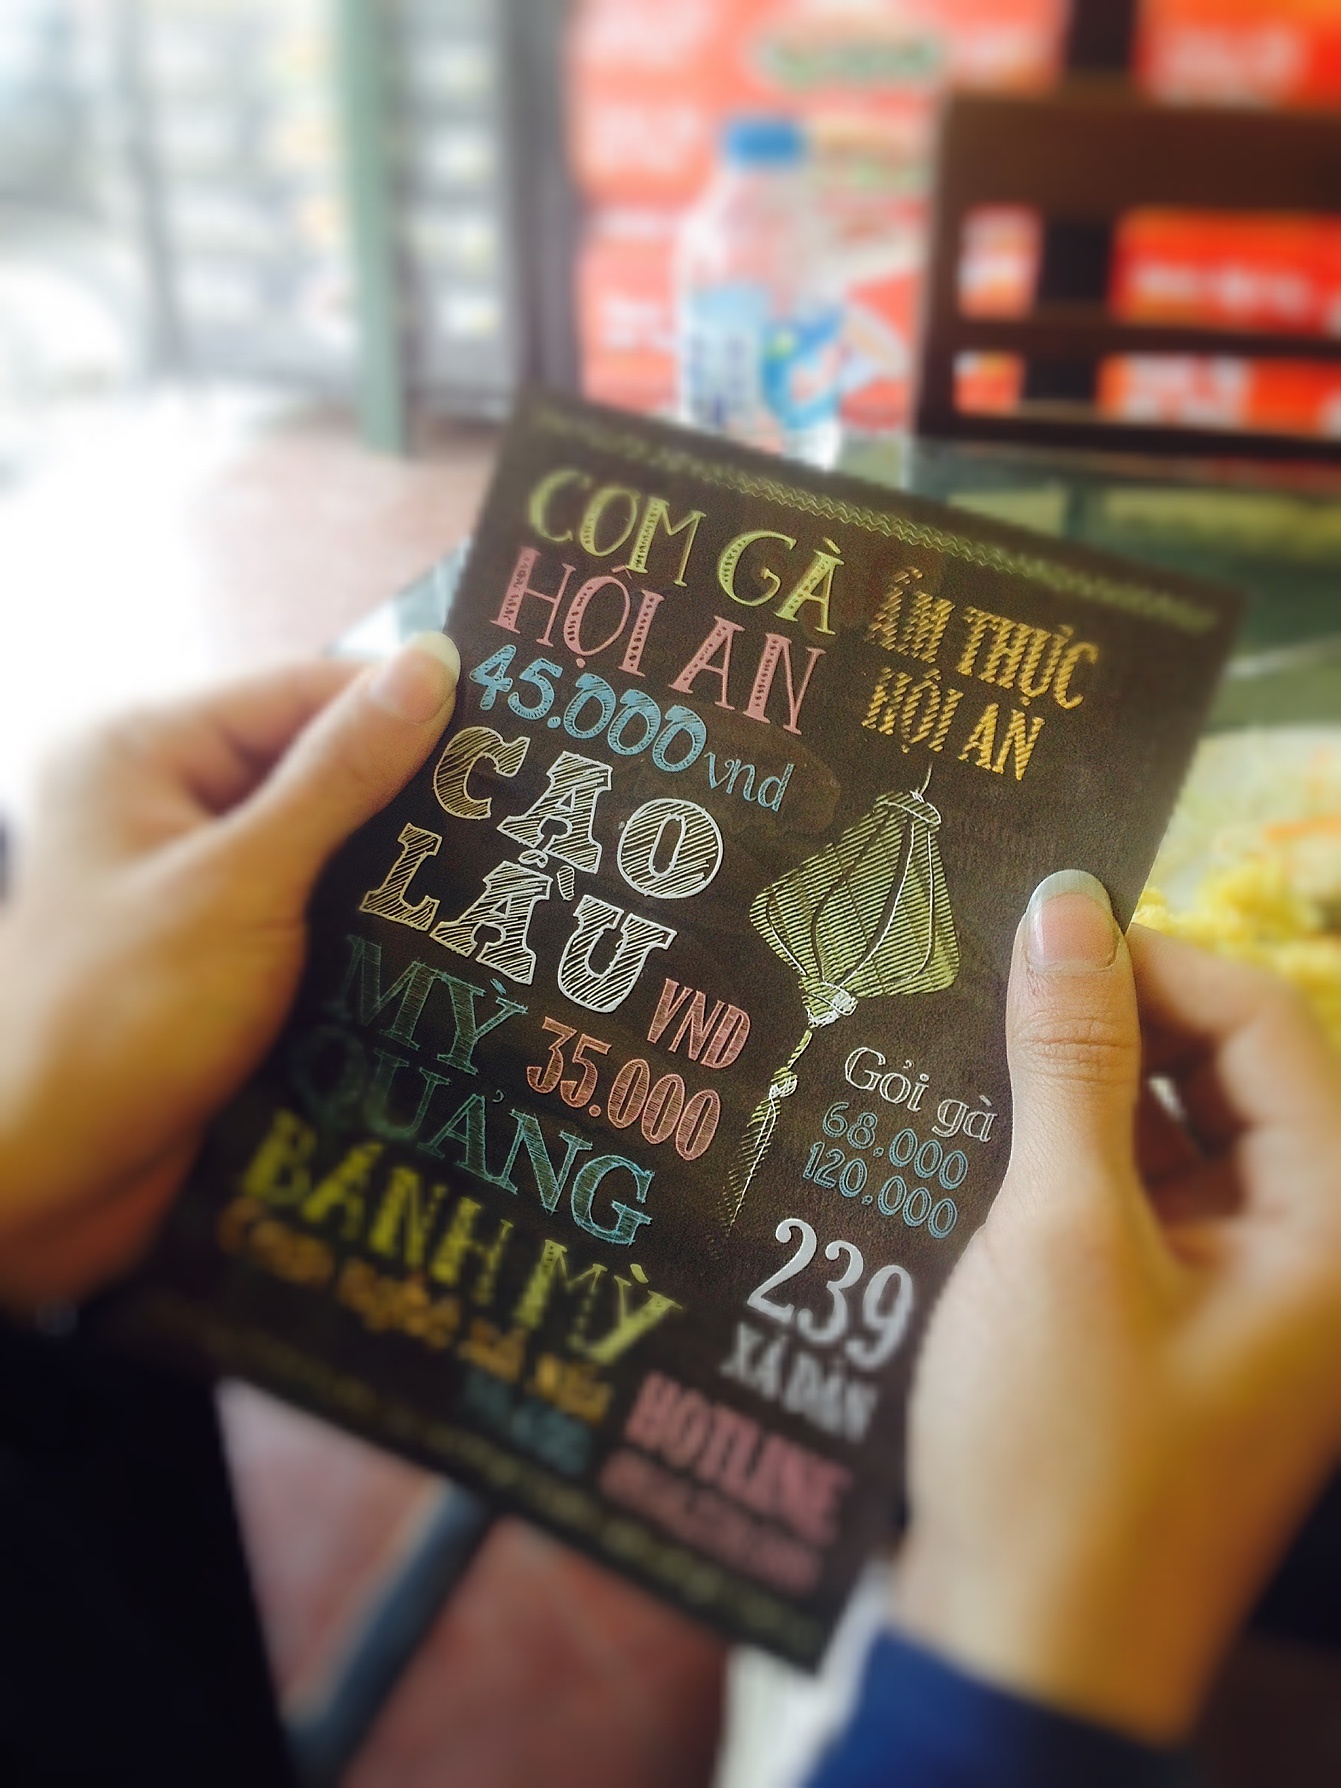 CƠM GÀ
HỘI AN
45.000 vnd
CAO
LẦU
MỲ
QUẢNG
VND
35.000
BÁNH MỲ
ẨM THỰC
HỘI AN
Gỏi gà
68.000
120.000
239
XÃ ĐÀN
HOTLINE